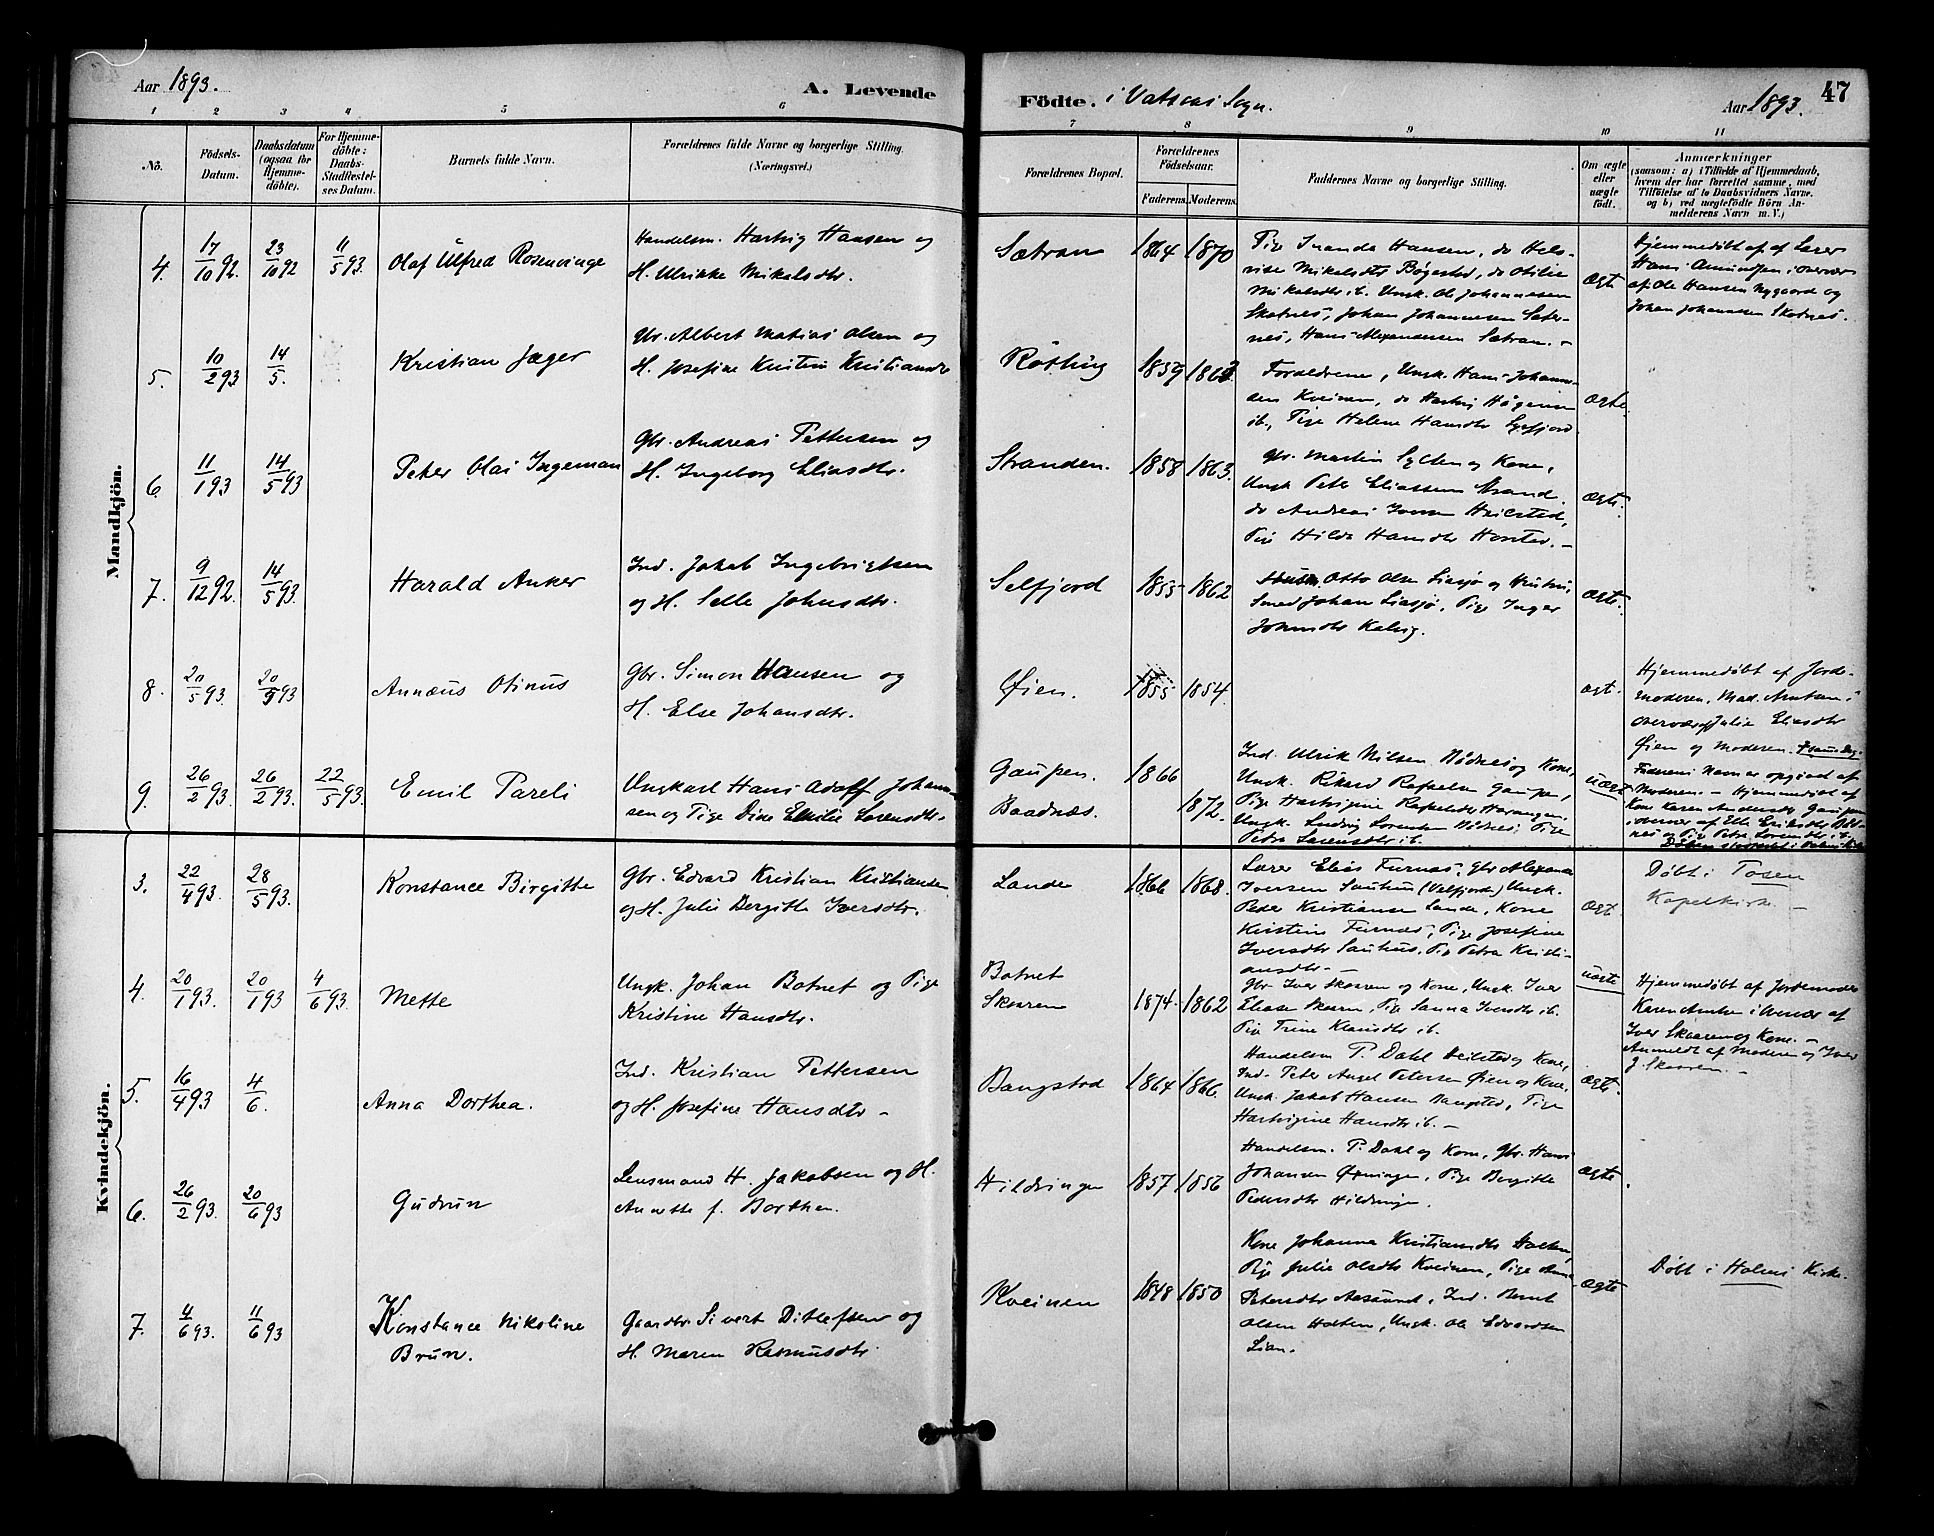 Aar 1893.
A. Levende
Födte. i Vatsaas Sogn.
Aar 1893.
47
1 2 3 4 5 6 7 8 9 10 11
No.
Födsels-
Datum.
Daabsdatum
(ogsaa for
Hjemme-
döbte).
For Hjemme-
döbte:
Daabs-
Stadfæstel-
ses Datum.
Barnets fulde Navn.
Forældrenes fulde Navne og borgerlige Stilling.
(Næringsvei.)
Forældrenes Bopæl.
Forældrenes
Födselsaar.
Faderens. Moderens.
Faddernes Navne og borgerlige Stilling.
Om ægte
eller
uægte
födt.
Anmærkninger
(saasom: a) i Tilfælde af Hjemmedaab,
hvem der har forrettet samme, med
Tilföielse af to Daabsvidners Navne.
og b) ved uægtefödte Börn An-
melderens Navn m. V.)
Mandkjön.
4. 17/10 92. 23/10 92 11/5 93. Olaf Ulfred Rosenvinge
Handelsm. Hartvig Hansen og
H. Ulrikke Mikalsdtr.
Sætran 1864 1870
Mikalsdtr ib. Ungk. Ole Johannesen
Skotnes, Johan Johannesen Sæter-
nes, Hans Alexandersen Sætran. -
Ægte
Hjemmedöbt af af Lærer
Hans Amundsen i overvær
af Ole Hansen Nygaard og
Johan Johansen Skotnes.
5. 10/2 93 14/5. Kristian Jæger
Gbr. Albert Matias Olsen og
H. Josefine Kristin Kristiansdr
Rötting 1859 1863.
Forældrene, Ungk. Hans Johann-
sen Kveinen, do Hartvig
ib., Pige Helene Hansdtr
Ægte.
6. 11/1 93 14/5 93 Peter Olai Ingeman
Gbr. Andreas Pettersen og
H. Ingeborg Eliasdtr.
Stranden. 1858 1863.
Gbr. Martin Sylten og Kone,
Ungk Peter Eliassen Strand.
do Andreas Heilstad,
Pige Hilda Hansdtr
Ægte.
7. 9/12 92. 14/5 93. Harald Anker
Ind. Jakob Ingebrigtsen
og H. Selle Johnsdtr.
Selfjord 1855 1862
Otto Olsen Liasjø og Hustru,
Smed Johan Liasjø, Pige Inger
Johnsdtr Kalvig.
Ægte.
8. 20/5 93. 20/5 93 Annæus Otinus
Gbr. Simon Hansen og
H. Else Johansdtr.
Øien. 1855 1854.
ægt.
Hjemmedöbt af Jord-
moderen, Mad. i
overvær af Julie Eliasdtr
Øien og Moderen.
9. 26/2 93. 26/2 93. 22/5 93. Emil Pareli
Ungkarl Hans Adolf Johann
sen og Pige Dine Emilie Sørensdtr.
Gaupen. 1866
Baadnæs. 1872.
Ind. Ulrik Nilsen og Kone,
Ungk. Rikard Rafaelsen Gaupen,
Pige Hartvigine Rafaelsdtr
Ungk. Ludvig Sorensen Pige
Petra Sørensdtr ib.
uægt
Faderens Navn er opgivet af
Moderen. - Hjemmedöbt af
Kone Karen Andersdtr Gaupen
Kvindekjön.
3. 22/4 93. 28/5 93. Konstance Birgitte
Gbr. Edvard Kristian Kristiansen
og H. Julie Bergitte Iversdtr.
Lande 1866 1868.
Lærer Elias Furnæs, Gbr Alexander
Iversen Sauhus (Velfjord) Ungk.
Peder Kristiansen Lande, Kone
Kirstine Furnæs, Pige Josefine
Iversdtr Sauhus, Pig Petra Kristi-
ansdtr -
Ægt.
Döbt i Tosen
Kapelkirke -
4. 20/1 93. 20/1 93 4/6 93. Mette
Ungk. Johan Botnet og Pige
Kristine Hansdtr.
Botnet
Skaaren 1874. 1862
Gbr Iver Skaaren og Kone, Ungk. Iver
Eliasen Skaaren, Pige Sanna Iversdtr ib.
Pige Trine Klausdtr ib.
uægte
Hjemmedöbt af Jordemoder
Karen i Overvær af
Iver Skaaren og Kone. -
Anmeldt af Moderen og Iver
J. Skaaren. -
5. 16/4 93 4/6. Anna Dorthea.
Ind. Kristian Pettersen
og H. Josefine Hansdtr -
Bangstad 1864 1866.
Handelsm P. Dahl Heilstad og Kone,
Ind. Peter Angel Petersen Øien og Kone,
Ungk. Jakob Hansen Bangstad, Pige
Hartvigine Hansdtr ib. -
Ægte.
6. 26/2 93. 20/6 93 Gudrun
Lensmand H. Jakobsen og H.
Anette f. Borthen.
Hildringen 1857 1856
Handelsm. P. Dahl og Kone, Gbr. Hans
Johansen Pige Bergitte
Pedersdtr Hildringen.
Ægte
7. 4/6 93. 11/6 93 Konstance Nikoline
Brun.
Gaardbr Sivert Ditlefsen og
H. Maren Rasmusdtr.
Kveinen 1848 1850
Kone Johanna Kristiansdtr Holten,
Pige Julie Olsdtr Kveinen, Pige Anna
Petersdtr Aasvand, Ind. Bernt
Olsen Holten, Ungk. Ole Edvardsen
Lian.
Ægte
Döbt i Holms Kirke.